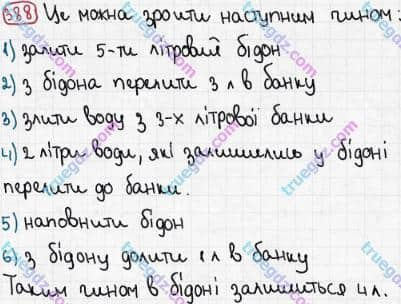 388 Це можна зроити наступним чином:
1) залити 5-ти літровий бідон
2) З бідона перелити 3 л в банку
3) злити воду з 3-х літрової банки
4) 2 літри води, які залишились у бідоні
перелити до банки.
5) наповнити бідон
6) з бідону долити 1 л в банку
Таким чином в бідоні залишиться 4 л.